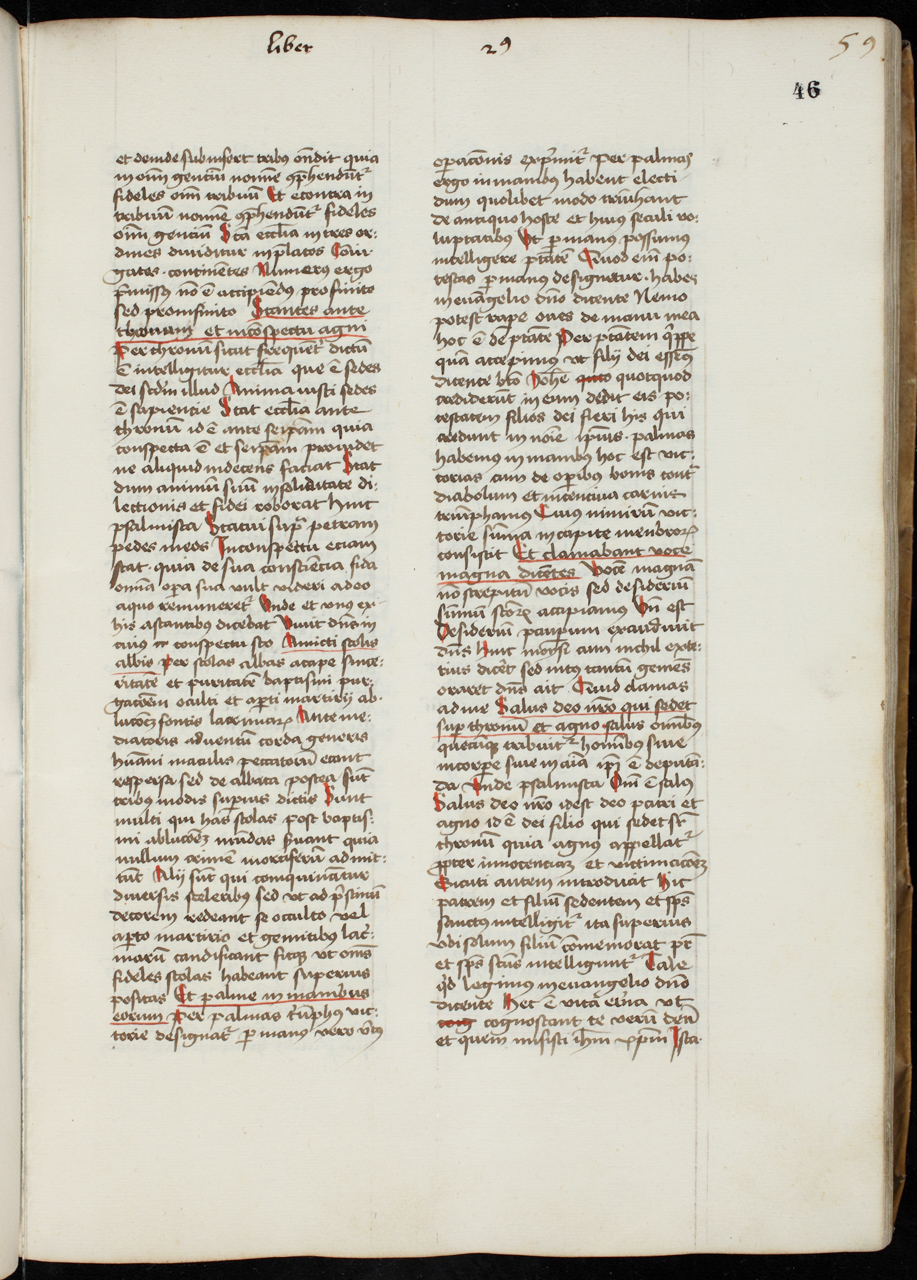 liber 2⁹
59
46
et deinde subinfert tribꝰ oñdit quia
in om̄i gentiū nomine ꝯprehendūtᷣ
fideles om̄i tribuū Et econtra in
tribuū nomine ꝯprehendūtᷣ fideles
om̄i gentiū Sta eccl̄ia in tres or⸗
dines diuiditur in p̄latos Coniu⸗
gatos · continētes Numerꝰ ergo
p̄missꝰ nō ē accipiendꝰ pro finito
sed pro infinito Stantes ante
thronum et in cōspectu agni
Per thronū sicut frequētᷣ dictū
ē intelligitur eccl̄ia que ē sedes
dei scd̄m illud Anima iusti sedes
ē sapientie Stat eccl̄ia ante
thronū id ē ante seip̄am quia
conspecta ē et seip̄am prouidet
ne aliquid indecens faciat Stat
dum animū suū in soliditate di⸗
lectionis et fidei roborat hinc
psalmista Statuit sup̄ petram
pedes meos In conspectu eciam
stat · quia de sua consciēcia fida
om̄ia oꝑa sua vult videri a deo
a quo remuneretᷣ Unde et vnꝰ ex
his astantibus dicebat Viuit dn̄s in
cuius conspectu sto Amicti stolis
albis Per stolas albas accipe since⸗
ritatē et puritatē baptismi pur⸗
gac̄oem occulti et aꝑti martirij ab⸗
luc̄oēz fontis lacrimaꝝ Ante me⸗
diatoris aduentū corda generis
hūani maculis peccatorū erant
respersa sed de albata postea sūt
tribꝰ modis superius dictis Sunt
multi qui has stolas post baptis⸗
mi abluc̄oēz mūdas seruant quia
nullum crimē mortiferū admit⸗
tūt Alij sūt qui coinquinātur
diuersis sceleribus sed vt ad p̄stinū
decorem redeant se occulto vel
aꝑto martirio et gemitibus lac̄⸗
marū candificant fitqꝫ vt om̄s
fideles stolas habeant superius
positas Et palme in manibus
eorum Per palmas triūphꝰ vic⸗
torie designatᷣ ꝑ manus vero v̄tꝰ
oꝑac̄onis exp̄mitᷣ Per palmas
ergo in manibus habent electi
dum quolibet modo triūhant
de antiquo hoste et huiꝰ seculi vo⸗
luptatibus Vt ꝑ manꝰ possumꝰ
intelligere p̄tatē Quod enī po⸗
testas ꝑ manꝰ designetur · habes
in euāgelio dn̄o dicente Nemo
potest rape oues de manu mea
hoc ē de p̄tate Per p̄tatem q̄ppe
quā accepimus vt filij dei essemꝰ
dicente bt̄o Ioh̄e quotquod
crediderūt in eum dedit eis po⸗
testatem filios dei fieri his qui
credunt in noīe ip̄ius · palmas
habemus in manibus hoc est vic⸗
torias cum de oꝑibus bonis contᷓ
diabolum et incentiua carnis
triūphamus Cuius nimirū vic⸗
torie sūma in capite membroꝝ
consistit Et clamabant voce
magna dicētes Vocē magnā
nō strepitū vocis sed desideriū
sūmū sc̄oꝝ accipiamus Vn̄ est
Desideriū pauperum exaudiuit
dn̄s Hinc moysi cum nichil exte⸗
rius dicēt sed intꝰ tantū gemēs
oraret dn̄s ait Quid clamas
ad me Salus deo nr̄o qui sedet
sup thronū et agno Salus om̄ibꝰ
quecūqꝫ tribuitᷣ hominibꝰ siue
in corꝑe siue in aīa ip̄i ē deputā⸗
da Unde psalmista Dn̄i ē salus
Salus deo nr̄o id est deo patri et
agno id ē dei filio qui sedet suꝑ
thronū quia agnꝰ appellatᷣ
ꝓpter innocentiam et victimac̄oēz
Sicuti autem introducit hic
patrem et filiū sedentem et sp̄s
sanctus intelligitᷣ ita superius
vbi solum filiū cōmemorat p̄r
et sp̄s sc̄us intelliguntᷣ Tale
qd̄ legimus in euāgelio dn̄o
dicente Hec ē vita et̄na vt
cognoscant te verū deū
et quem misisti ih̄m xp̄m Ista